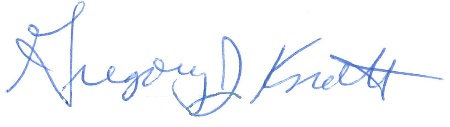 Gregory D Knott